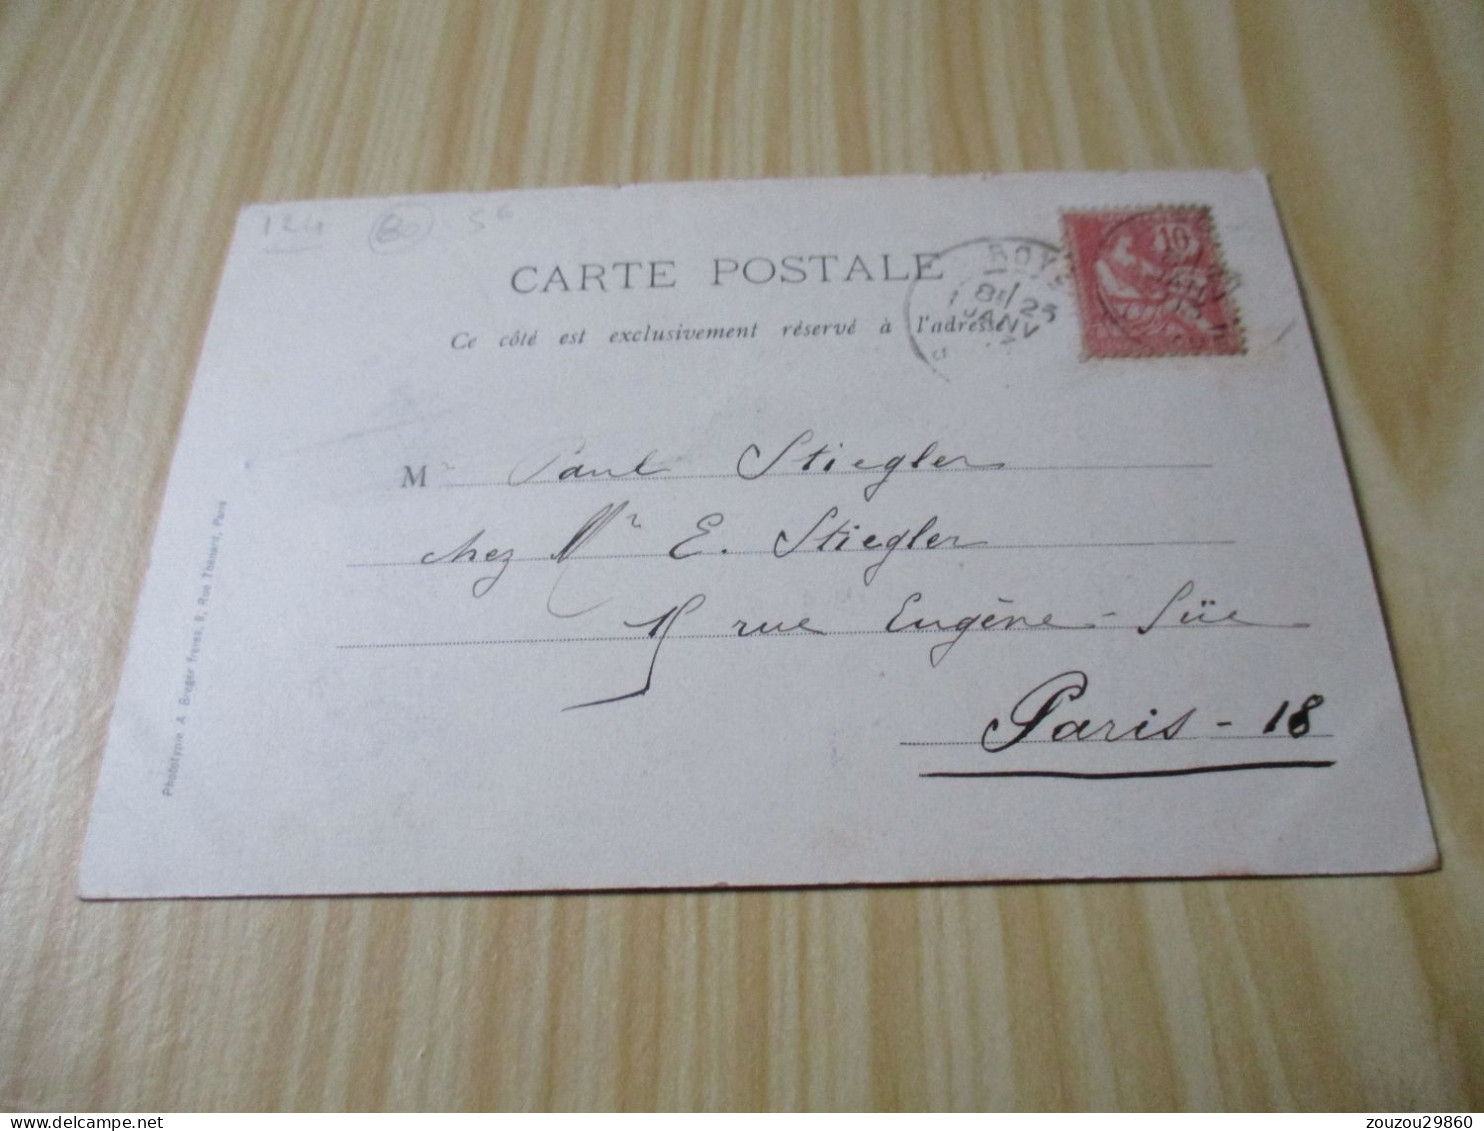 124 5 6
CARTE POSTALE
Ce côté est exclusivement réservé à l'adresse
8E / 25
JANV
10
Mr Paul Stiegler
chez Mr E. Stiegler
15 rue Eugène-Süe
Paris - 18
Phototypie A. Breger frères, 9, Rue Thénard, Paris
zouzou29860